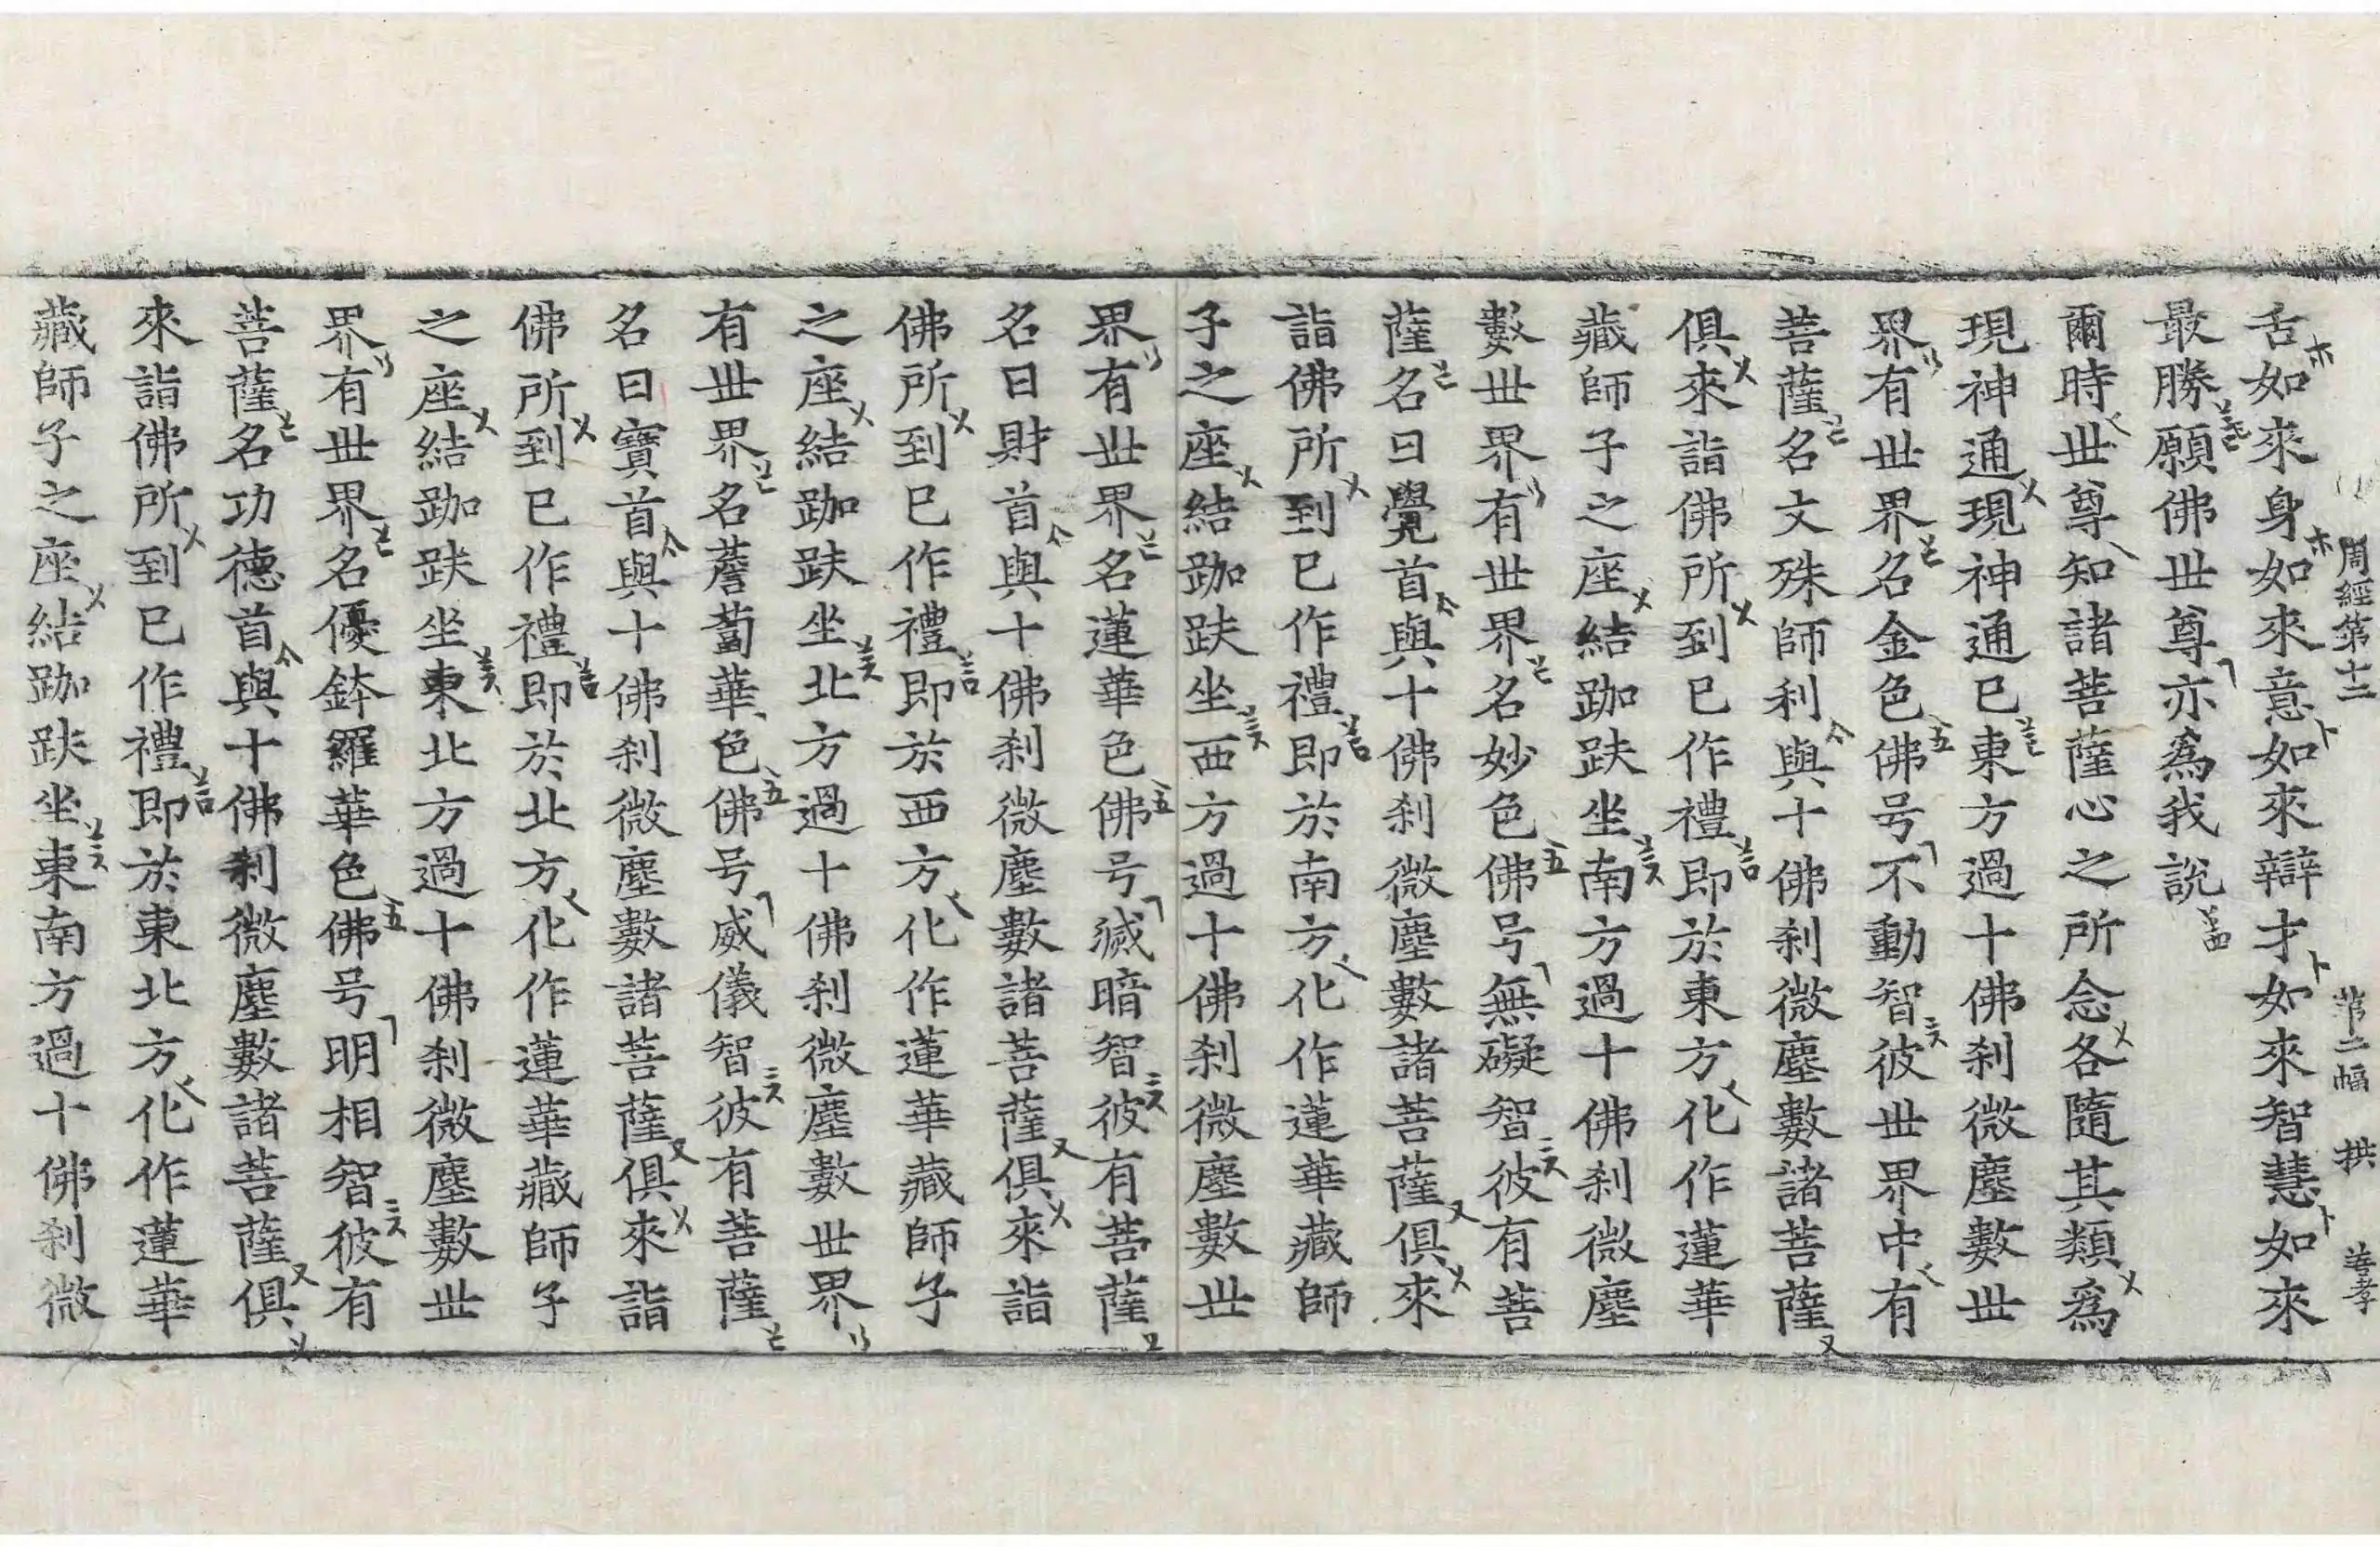 周經第十二 第二幅 拱 善孝
舌如來身如來意如來辯才如來智慧如來
最勝願佛世尊亦爲我說
爾時世尊知諸菩薩心之所念各隨其類爲
現神通現神通已東方過十佛刹微塵數世
界有世界名金色佛号不動智彼世界中有
菩薩名文殊師利與十佛刹微塵數諸菩薩
俱來詣佛所到已作禮即於東方化作蓮華
藏師子之座結跏趺坐南方過十佛刹微塵
數世界有世界名妙色佛号無礙智彼有菩
薩名曰覺首與十佛刹微塵數諸菩薩俱來
詣佛所到已作禮即於南方化作蓮華藏師
子之座結跏趺坐西方過十佛刹微塵數世
界有世界名蓮華色佛号滅暗智彼有菩薩
名曰財首與十佛刹微塵數諸菩薩俱來詣
佛所到已作禮即於西方化作蓮華藏師子
之座結跏趺坐北方過十佛刹微塵數世界
有世界名薝蔔華色佛号威儀智彼有菩薩
名曰寶首與十佛刹微塵數諸菩薩俱來詣
佛所到已作禮即於北方化作蓮華藏師子
之座結跏趺坐東北方過十佛刹微塵數世
界有世界名優鉢羅華色佛号明相智彼有
菩薩名功德首與十佛刹微塵數諸菩薩俱
來詣佛所到已作禮即於東北方化作蓮華
藏師子之座結跏趺坐東南方過十佛刹微